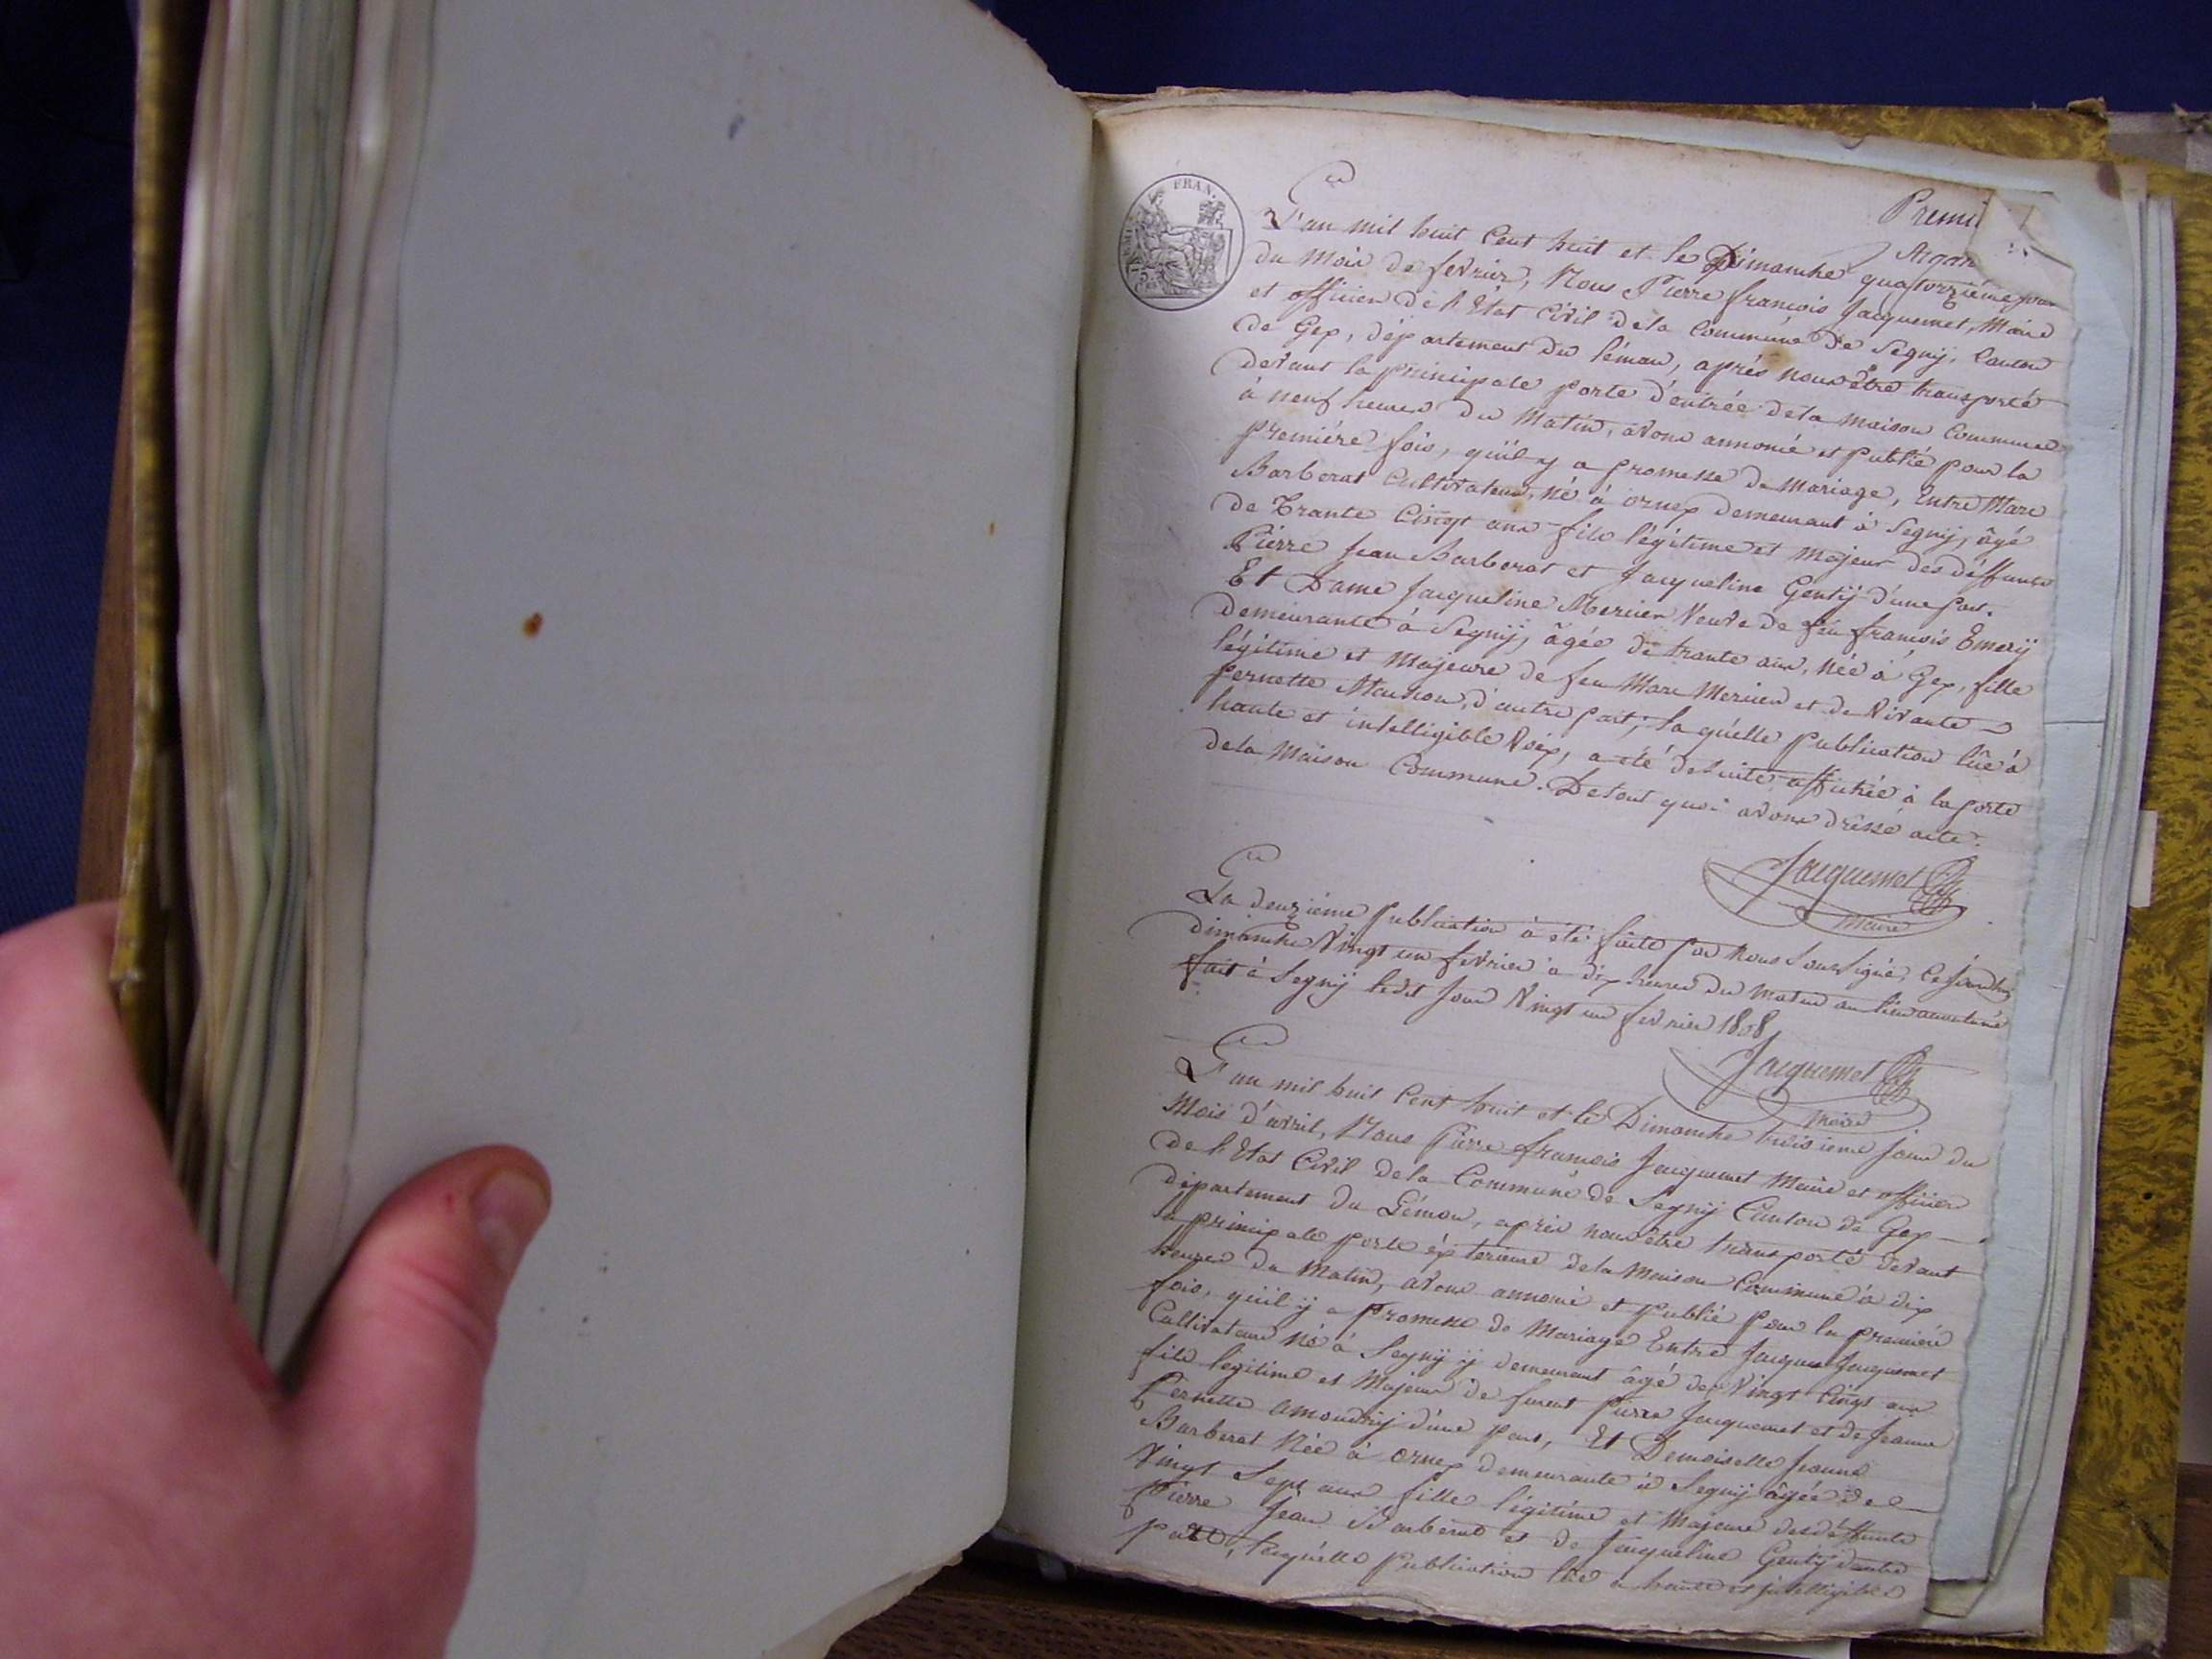 Premi
FRAN.
L'an mil huit Cent huit et le Dimanche quatorzieme jour
du Mois de fevrier, Nous Pierre francois Jacquemet, Maire
et officier de l'Etat Civil dela Commune de Segnÿ, Canton
de Gex, département du léman, aprés nous être transporté
devant la principale porte d'entrée dela maison Commune
à neuf heures du Matin, avons annoncé et publié pour la
première fois, qu'il y a promesse de Mariage, Entre Marc
Barberat Cultivateur, né à ornex demeurant à Segnÿ, âgé
de Trante Cinqt ans fils légitime et Majeur des déffunts
Pierre Jean Barberat et Jacqueline Gentÿ d'une part.
Et Dame Jacqueline Mercier Veuve de feu francois Emerÿ
demeurante à Segnÿ, âgée de trante ans, née à Gex, fille
légitime et Majeure de feu Marc Mercier et de Vivante
pernette d'autre part, laquélle publication lüe à
haute et intelligible Voix, a été desuite affichée à la porte
dela Maison Commune. Detout quoi avons dressé acte.
Jacquemet
Maire
La deuxiéme Publication à été faite par Nous Sousigné, Ce jourdhui
dimanche Vingt un fevrier à dix heures du matin au lieu acoutumé
fait à Segnÿ ledit jour Vingt un fevrier 1808
Jacquemet
Maire
L'an mil huit Cent huit et le Dimanche troisieme jour du
Mois d'avril, Nous Pierre francois Jacquemet Maire et officier
de l'Etat Civil dela Commune de Segnÿ Canton de Gex
département du Léman, aprés nous être transporté devant
la principale porte éxterieure dela Maison Commune à dix
heures du Matin, avons annoncé et publié pour la premiere
fois, qu'il ÿ a promesse de Mariage Entre Jacques Jacquemet
Cultivateur Né à Segnÿ ÿ demeurant âgé de Vingt Cinqt ans
fils legitime et Majeur de Pierre Jacquemet et de Jeanne
Pernette amoudrÿ d'une part, Et Demoiselle Jeanne
Barberat Née à ornex demeurante à Segnÿ âgée de
Vingt Sept ans fille légitime et Majeure des déffunts
Pierre Jean Barberat et de Jacqueline Gentÿ d'autre
part, laquélle Publication lüe a haute et intelligible